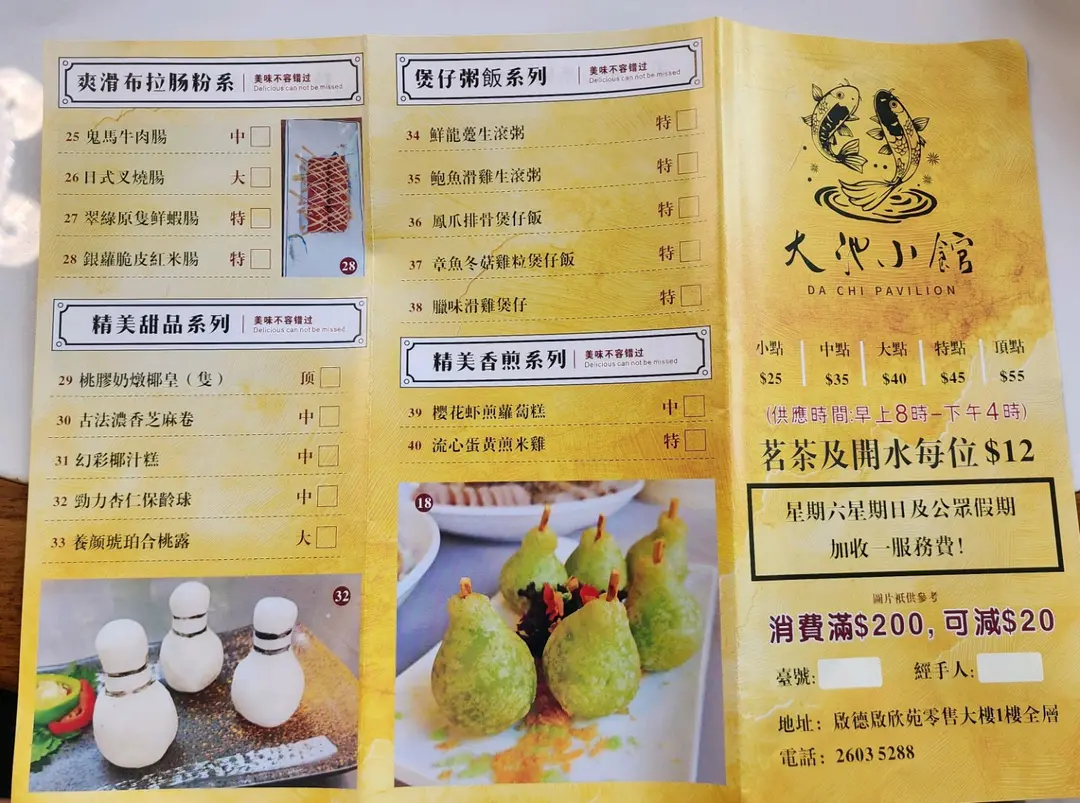 爽滑布拉肠粉系
美味不容错过
Delicious can not be missed
25 鬼馬牛肉腸 中
26 日式叉燒腸 大
27 翠綠原隻鮮蝦腸 特
28 銀蘿脆皮紅米腸 特
28
精美甜品系列
美味不容错过
Delicious can not be missed
29 桃膠奶燉椰皇（隻） 顶
30 古法濃香芝麻卷 中
31 幻彩椰汁糕 中
32 勁力杏仁保齡球 中
33 養颜琥珀合桃露 大
32
煲仔粥飯系列
美味不容错过
Delicious can not be missed
34 鮮龍躉生滾粥 特
35 鮑魚滑雞生滾粥 特
36 鳳爪排骨煲仔飯 特
37 章魚冬菇雞粒煲仔飯 特
38 臘味滑雞煲仔 特
精美香煎系列
美味不容错过
Delicious can not be missed
39 櫻花虾煎蘿蔔糕 中
40 流心蛋黃煎米雞 特
18
大池小館
DA CHI PAVILION
小點 中點 大點 特點 頂點
$25 $35 $40 $45 $55
(供應時間:早上8時-下午4時)
茗茶及開水每位 $12
星期六星期日及公眾假期
加收一服務費!
圖片祇供參考
消費滿$200, 可減$20
臺號: 經手人:
地址: 啟德啟欣苑零售大樓1樓全層
電話: 2603 5288